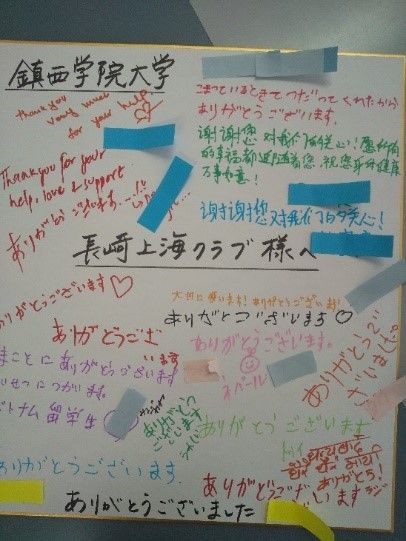 鎮西学院大学
thank you
very much
for your help
こまっているときてつだってくれたから
ありがとうございます。
谢谢您对我们的关心！愿所有
的幸福都追随着您，祝您身体健康
万事如意！
Thank you for your
help, love & support...
ありがとうございます...
谢谢您对我们的关心！
長崎上海クラブ様へ
ありがとうございます♡
大切に使います！ありがとうございます
ありがとうございます♡
ありがとうござ
います
ありがとうございます。
ネパール
ありがとうご
ざいました。
まことにありがとうございます
いせつにつかいます。
ベトナム留学生
ありがとう
ございます
ありがとうございます
ありがとうございます.
ありがとうございます
ありがとう!
ありがとうございました